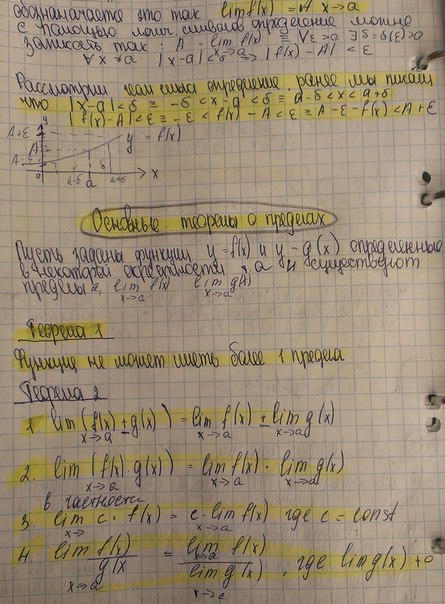 обозначается это так lim f(x) = A x→a
с помощью логич. символов определение можно
записать так: A = lim f(x) ≡ ∀ε>0 ∃δ=δ(ε)>0
x→a
∀x ≠ a |x-a|<δ ⇒ |f(x)-A|<ε
Рассмотрим геом смысл определение, ранее мы писали
что |x-a|<δ ≡ -δ<x-a<δ ≡ a-δ<x<a+δ
|f(x)-A|<ε ≡ -ε<f(x)-A<ε ≡ A-ε<f(x)<A+ε
y
A+ε
A
A-ε
y = f(x)
δ
0 a-δ a a+δ x
Основные теоремы о пределах
Пусть заданы функции y=f(x) и y=g(x) определенные
в некоторой окрестности a и существуют
пределы lim f(x) lim g(x)
x→a x→a
Теорема 1
Функция не может иметь более 1 предела
Теорема 2
1. lim (f(x) ± g(x)) = lim f(x) ± lim g(x)
x→a x→a x→a
2. lim (f(x) · g(x)) = lim f(x) · lim g(x)
x→a x→a x→a
в частности
3. lim c · f(x) = c · lim f(x) где c = const
x→ x→a
4. lim f(x)/g(x) = lim f(x)/lim g(x), где lim g(x) ≠ 0
x→a x→a x→a